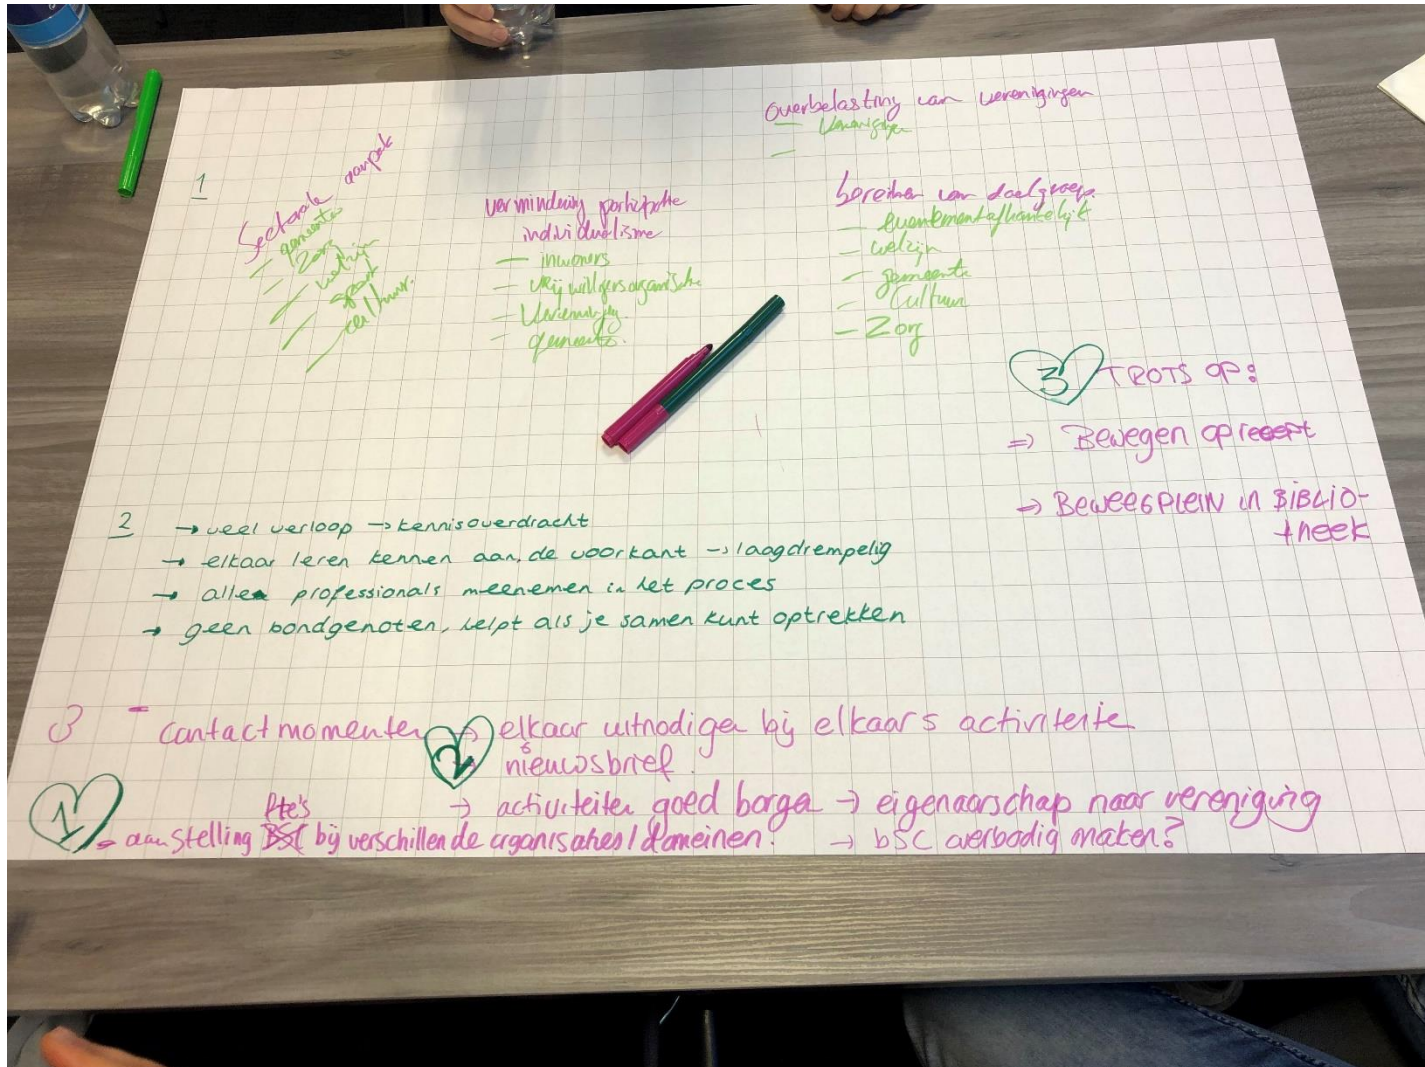 overbelasting van verenigingen
— Verenigingen
—
1
Sectorale aanpak
— gemeente
— Zorg
— welzijn
— sport
— cultuur.
vermindering participatie
individualisme
— inwoners
— vrijwilligersorganisatie
— Vereniging
— gemeente.
bereiken van doelgroep.
— evenementafhankelijk
— welzijn
— gemeente
— Cultuur
— Zorg
3 TROTS OP:
=> Bewegen op recept
-> BEWEEGPLEIN in BIBLIO-
theek
2 → veel verloop → kennisoverdracht
→ elkaar leren kennen aan de voorkant → laagdrempelig
→ alle professionals meenemen in het proces
→ geen bondgenoten, helpt als je samen kunt optrekken
3 - contactmomenten 2 → elkaar uitnodigen bij elkaars activiteite
nieuwsbrief.
1 → activiteiten goed borgen → eigenaarschap naar vereniging
fte's
- aanstelling BSC bij verschillende organisaties/domeinen. → bSC overbodig maken?